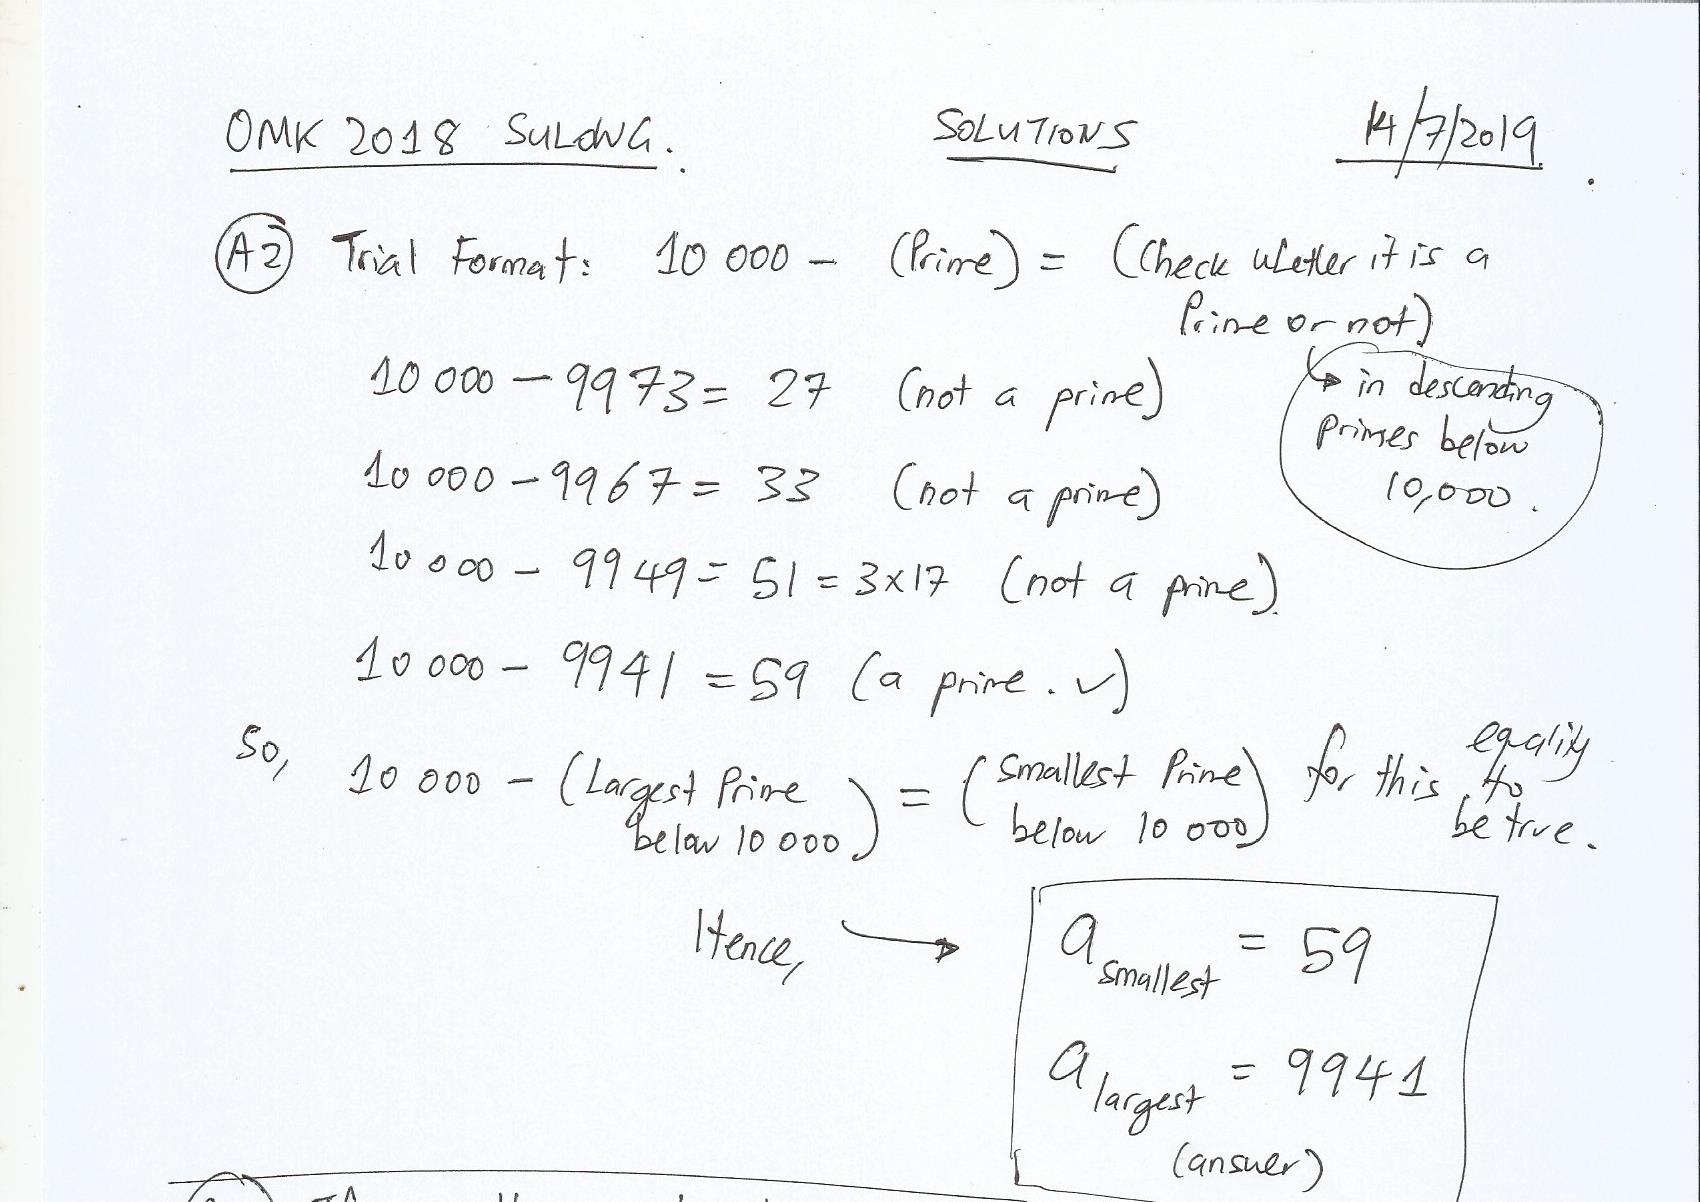 OMK 2018 SULONG. SOLUTIONS 14/7/2019.
A2 Trial Format: 10 000 – (Prime) = (Check whether it is a
Prime or not)
10 000 – 9973 = 27 (not a prime)
↳ in descending
primes below
10,000.
10 000 – 9967 = 33 (not a prime)
10 000 – 9949 = 51 = 3x17 (not a prime).
10 000 – 9941 = 59 (a prime. ✓)
So, 10 000 – (Largest Prime below 10 000) = (Smallest Prime below 10 000) for this equality to be true.
Hence, → a smallest = 59
a largest = 9941
(answer)